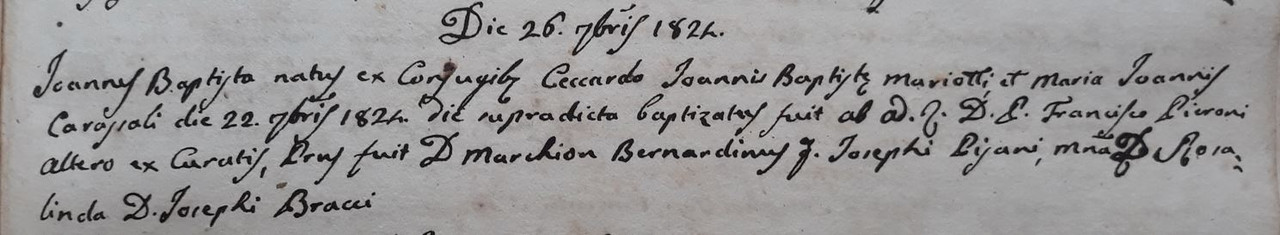 Die 26. 7bris 1824.
Joannes Baptista natus ex Conjugibz Ceccardo Joannis Baptistę Mariotti, et Maria Joannis
Carassali die 22. 7bris 1824. die supradicta baptizatus fuit ab ad. R. D. P. Francisco Pieroni
altero ex Curatis, Prus fuit D Marchion Bernardinus q. Josephi Pisani, mna D Rosa,
linda D. Josephi Bracci